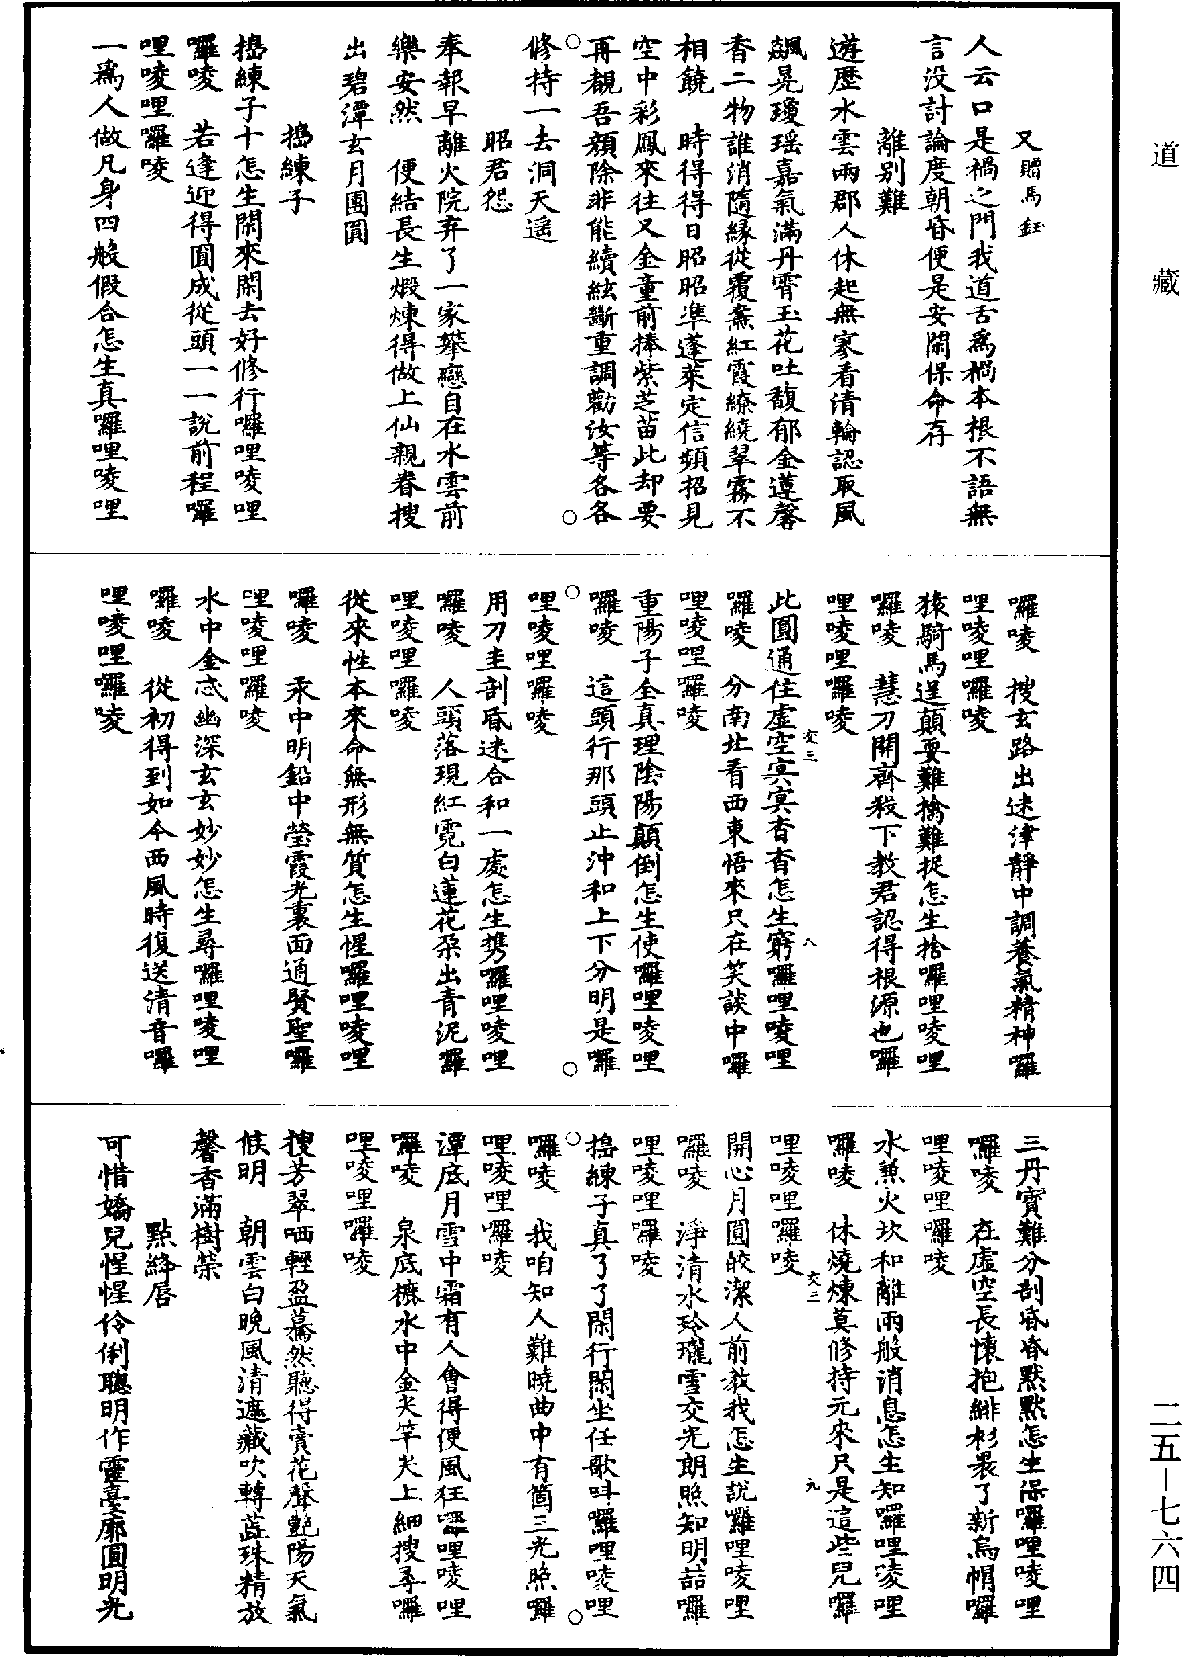 道藏
又贈馬鈺
人云口是禍之門我道舌爲禍本根不語無
言没討論度朝昏便是安閑保命存
離別難
遊歷水雲兩郡人休起無寥看清輪認取風
飆晃瓊瑶嘉氣滿丹霄玉花吐馥郁金遵馨
香二物誰消隨緣從覆燾紅霞繚繞翠霧不
相饒　時得得日昭昭準蓬萊定信頻招見
空中彩鳳來往又金童前捧紫芝苗此却要
再覩吾顏除非能續絃斷重調勸汝等各各
修持一去洞天遥
昭君怨
奉報早離火院弃了一家攀戀自在水雲前
樂安然　便結長生煅煉得做上仙親眷搜
出碧潭玄月團圓
搗練子
搗練子十怎生閑來閑去好修行囉哩唛哩
囉唛　若逢迎得圓成從頭一一說前程囉
哩唛哩囉唛
一爲人做凡身四般假合怎生真囉哩唛哩
囉唛　搜玄路出迷津靜中調養氣精神囉
哩唛哩囉唛
猿騎馬逞顛耍難擒難捉怎生捨囉哩唛哩
囉唛　慧刀開齊殺下教君認得根源也囉
哩唛哩囉唛
此圓通住虛空冥冥杳杳怎生窮囉哩唛哩
交三　八
囉唛　分南北看西東悟來只在笑談中囉
哩唛哩囉唛
重陽子全真理陰陽顛倒怎生使囉哩唛哩
囉唛　這頭行那頭止沖和上下分明是囉
哩唛哩囉唛
用刀圭剖昏迷合和一處怎生擕囉哩唛哩
囉唛　人頭落現紅霓白蓮花朵出青泥囉
哩唛哩囉唛
從來性本來命無形無質怎生惺囉哩唛哩
囉唛　汞中明鉛中瑩霞光裏面通賢聖囉
哩唛哩囉唛
水中金忒幽深玄玄妙妙怎生尋囉哩唛哩
囉唛　從初得到如今西風時復送清音囉
哩唛哩囉唛
三丹寶難分剖昏昏默默怎生保囉哩唛哩
囉唛　在虛空長懷抱緋衫裰了新烏帽囉
哩唛哩囉唛
水兼火坎和離兩般消息怎生知囉哩唛哩
囉唛　休燒煉莫修持元來只是這些兒囉
交三　九
哩唛哩囉唛
開心月圓皎潔人前教我怎生說囉哩唛哩
囉唛　淨清水玲瓏雪交光朗照知明喆囉
哩唛哩囉唛
搗練子真了了閑行閑坐任歌叫囉哩唛哩
囉唛　我咱知人難曉曲中有箇三光照囉
哩唛哩囉唛
潭底月雪中霜有人會得便風狂囉哩唛哩
囉唛　泉底櫢水中金尖竿尖上細搜尋囉
哩唛哩囉唛
搜芳翠哂輕盈驀然聽得賣花聲艶陽天氣
候明　朝雲白晚風清遮藏吹轉蕋珠精放
馨香滿樹榮
點絳唇
可惜嬌兒惺惺伶俐聰明作靈臺廓圓明光
二五—七六四